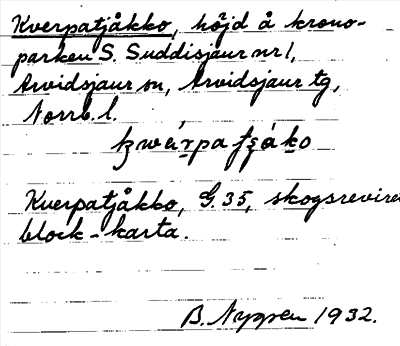 Kverpatjåkko, höjd å krono-
parken S. Suddisjaur nr 1,
Arvidsjaur sn, Arvidsjaur tg,
Norrb. l.
Kverpatjåkko, G. 35, skogsrevire
block-karta.
B. Nygren 1932.